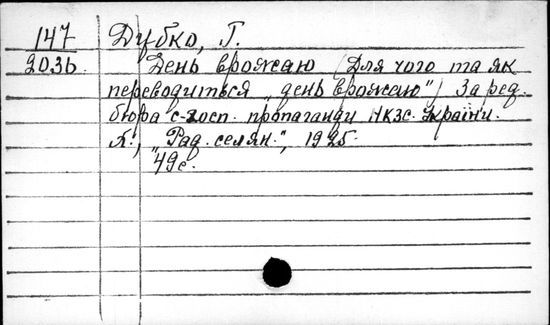 147 Дубко, Г.
2036 День врожаю (Для чого та як
переводиться „день врожаю") За ред.
бюра с-госп. пропаганди Нкзс. України.
Х., "Рад. селян.", 1925.
49с.